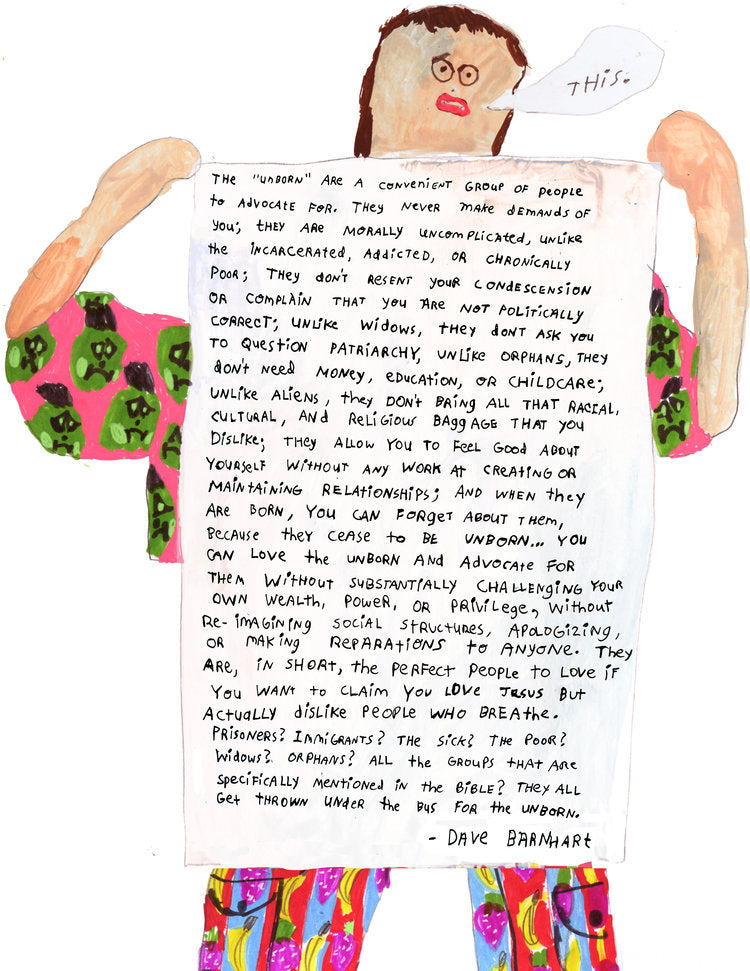 THIS.
THE "UNBORN" ARE A CONVENIENT GROUP OF PEOPLE
to ADVOCATE FOR. THEY NEVER MAKE DEMANDS OF
YOU; they ARE MORALLY UNCOMPLICATED, UNLIKE
the INCARCERATED, ADDICTED, OR CHRONICALLY
POOR; THEY DON'T RESENT YOUR CONDESCENSION
OR COMPLAIN THAT YOU ARE NOT POLITICALLY
CORRECT; UNLIKE WIDOWS, tHEY dONT ASK YOU
TO QUESTION PATRIARCHY, UNLIKE ORPHANS, THEY
dON'T NEED MONEY, EDUCATION, OR CHILDCARE;
UNLIKE ALIENS, they DON'T BRING ALL THAT RACIAL,
CULTURAL, AND RELIGIOUS BAGGAGE THAT YOU
DISLIKE; THEY ALLOW YOU TO FEEL GOOD ABOUT
YOURSELF WITHOUT ANY WORK AT CREATING OR
MAINTAINING RELATIONSHIPS; AND WHEN they
ARE BORN, YOU CAN FORGET ABOUT THEM,
BECAUSE they CEASE to BE UNBORN... YOU
CAN LOVE the UNBORN AND ADVOCATE FOR
THEM WITHOUT SUBSTANTIALLY CHALLENGING YOUR
OWN WEALTH, POWER, OR PRIVILEGE, WITHOUT
RE-IMAGINING SOCIAL STRUCTURES, APOLOGIZING,
OR MAKING REPARATIONS to ANYONE. THEY
ARE, IN SHORT, the PERFECT PEOPLE to LOVE IF
YOU WANT to CLAIM YOU LOVE JESUS BUT
ACTUALLY DISLIKE PEOPLE WHO BREATHE.
PRISONERS? IMMIGRANTS? THE SICK? THE POOR?
WIDOWS? ORPHANS? ALL the GROUPS THAT ARE
SPECIFICALLY MENTIONED IN the BIBLE? THEY ALL
GET THROWN UNDER the BUS FOR the UNBORN.
- DAVE BARNHART